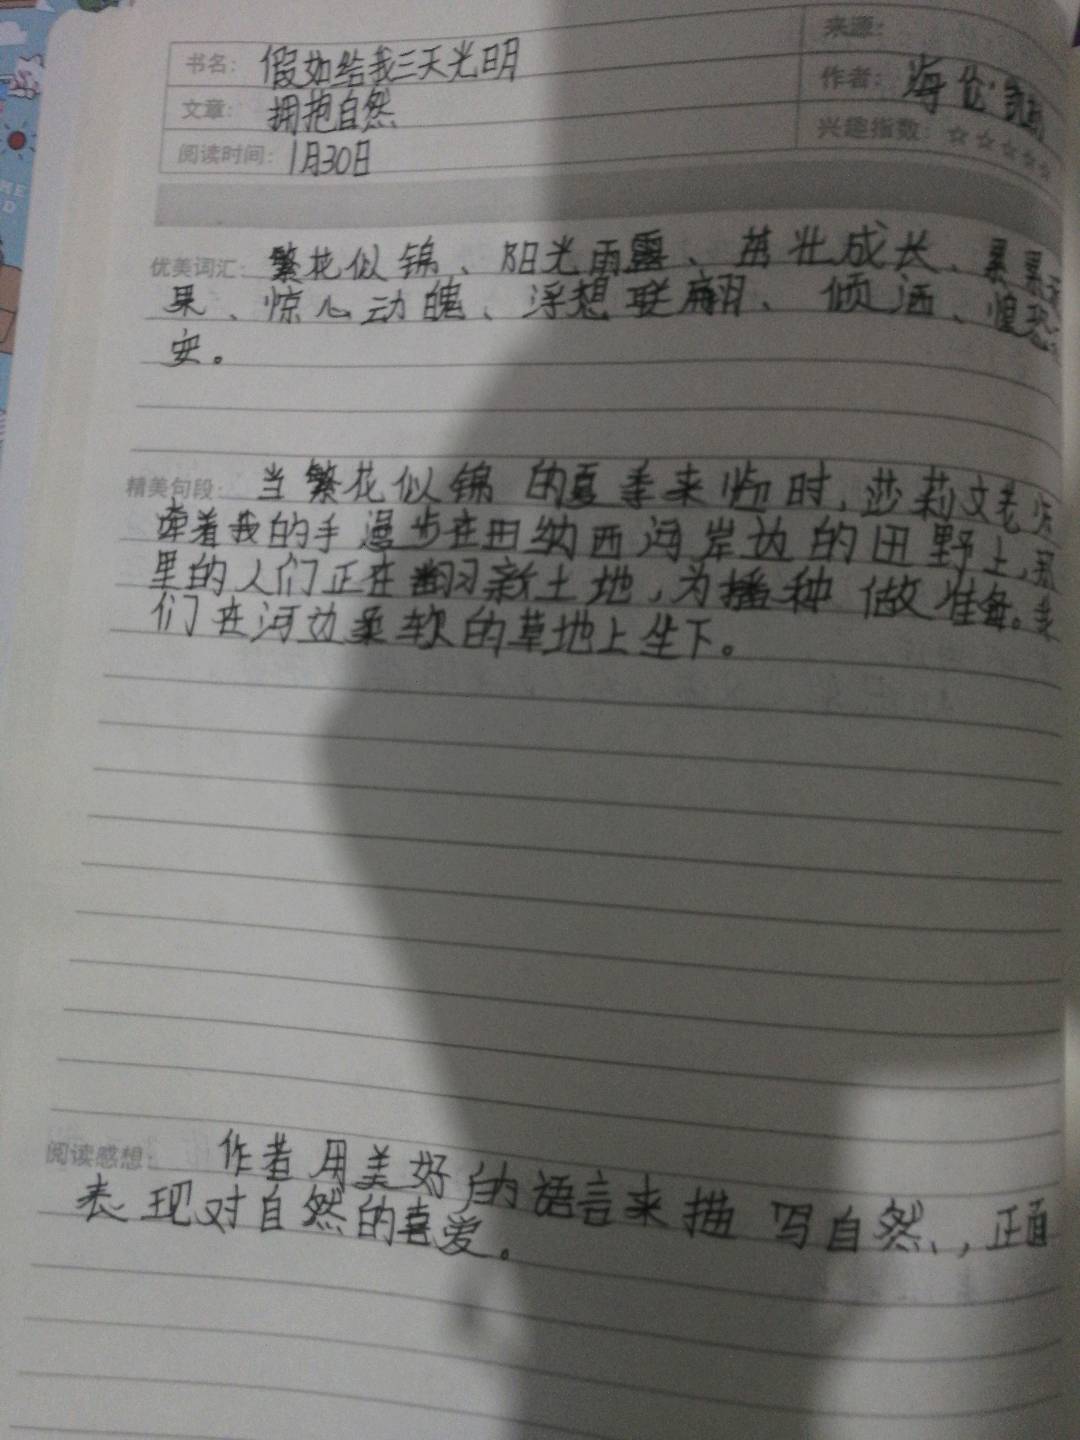 来源：
书名：假如给我三天光明
作者：海伦·凯勒
文章：拥抱自然
兴趣指数：☆☆☆☆☆
阅读时间：1月30日
优美词汇：繁花似锦、阳光雨露、茁壮成长、累累
果、惊心动魄、浮想联翩、倾洒、惶恐
安。
精美句段：当繁花似锦的夏季来临时，莎莉文老
牵着我的手漫步在田纳西河岸边的田野上，
里的人们正在翻新土地，为播种做准备。我
们在河边柔软的草地上坐下。
阅读感想：作者用美好的语言来描写自然，正面
表现对自然的喜爱。